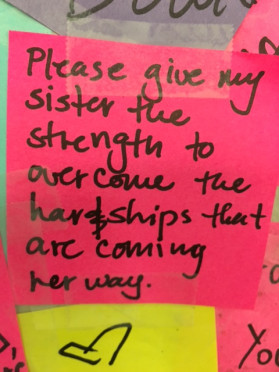 Please give my
sister the
strength to
overcome the
hardships that
are coming
her way.
You